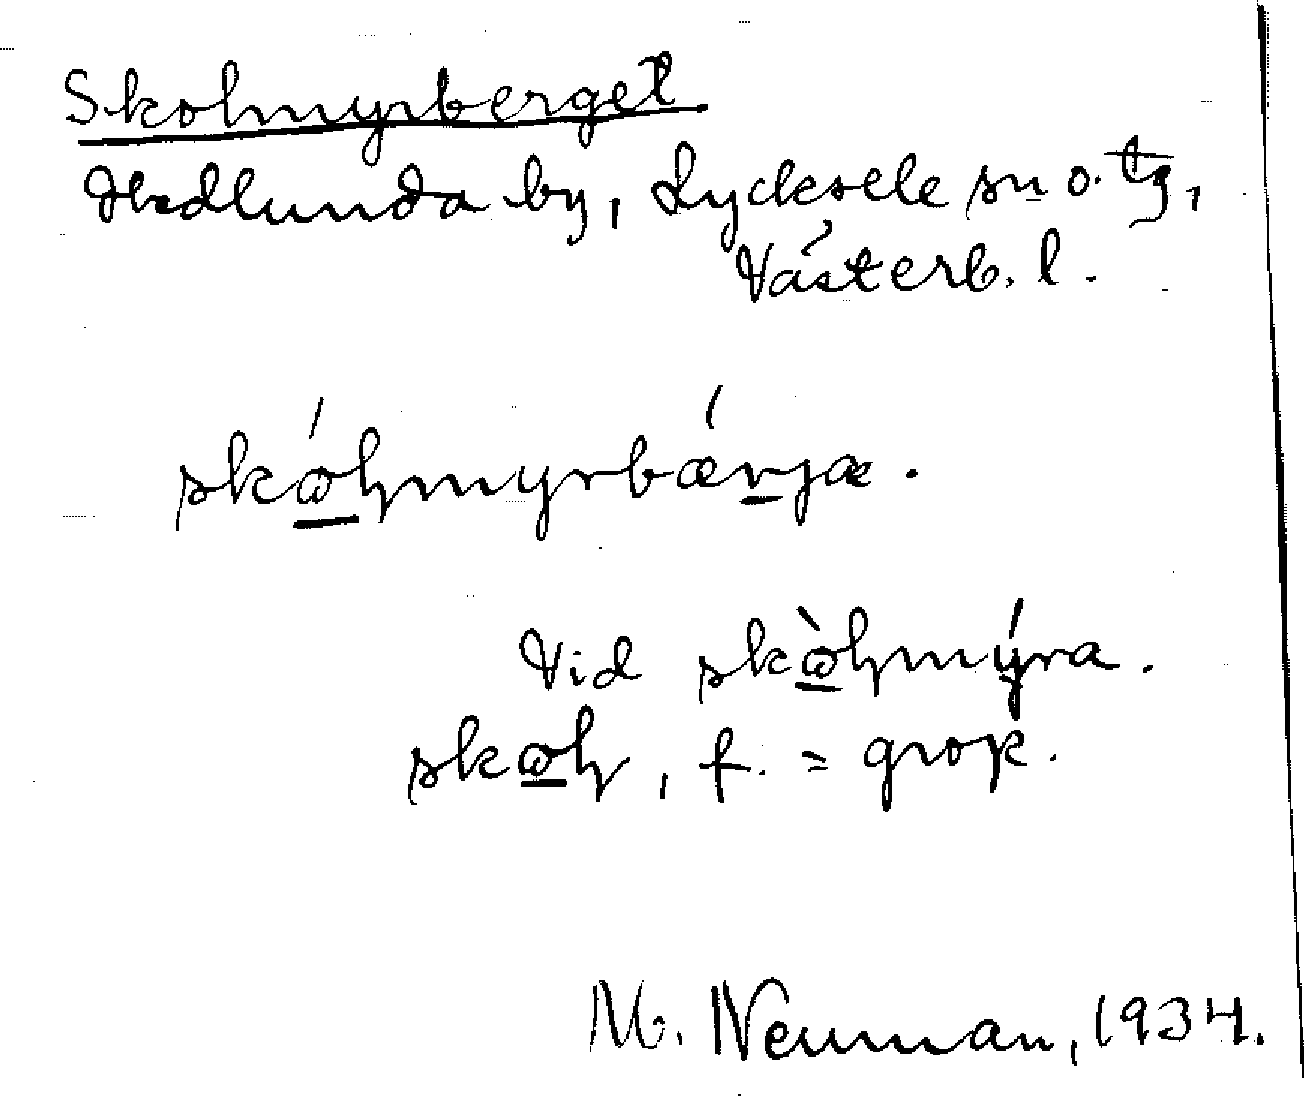 Skolmyrberget
Hedlunda by, Lycksele sn o. tg,
Västerb. l.
skó̲lmyrbǽrjæ.
Vid skò̲lmýra.
sko̲l, f. = grop.
M. Neuman, 1934.